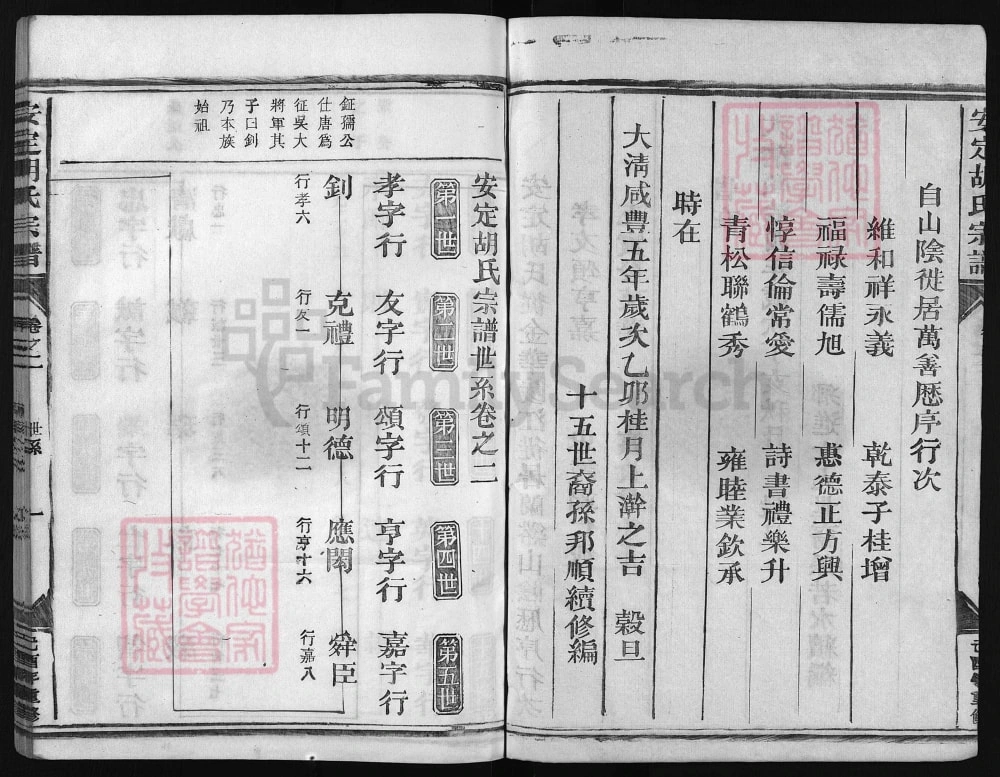 安定胡氏宗譜
自山陰徙居萬善歷序行次
維和祥永義　乾泰子桂增
福祿壽儒旭　惠德正方興
惇信倫常愛　詩書禮樂升
青松聯鶴秀　雍睦業欽承
時在
大淸咸豐五年歲次乙卯桂月上澣之吉　穀旦
十五世裔孫邦順續修編
安定胡氏宗譜世系卷之二
第一世　第二世　第三世　第四世　第五世
孝字行　友字行　頌字行　亨字行　嘉字行
釗　克禮　明德　應閎　舜臣
行孝六　行友一　行頌十二　行亨十六　行嘉八
鉦孺公
仕唐爲
征吳大
將軍其
子曰釗
乃本族
始祖
安定胡氏宗譜　卷之二　世系　一
FamilySearch